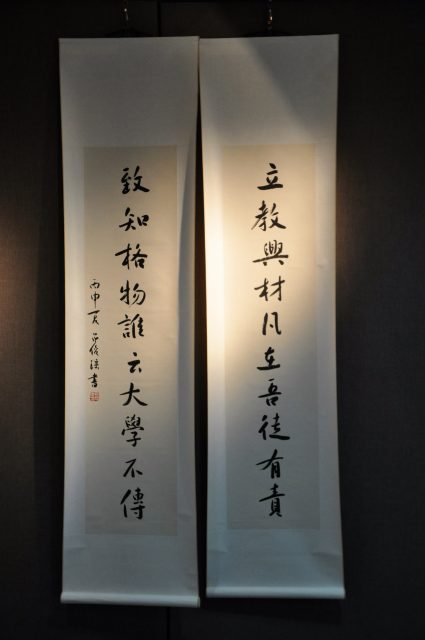 立教興材凡在吾徒有責
致知格物誰云大學不傳
丙申夏
書